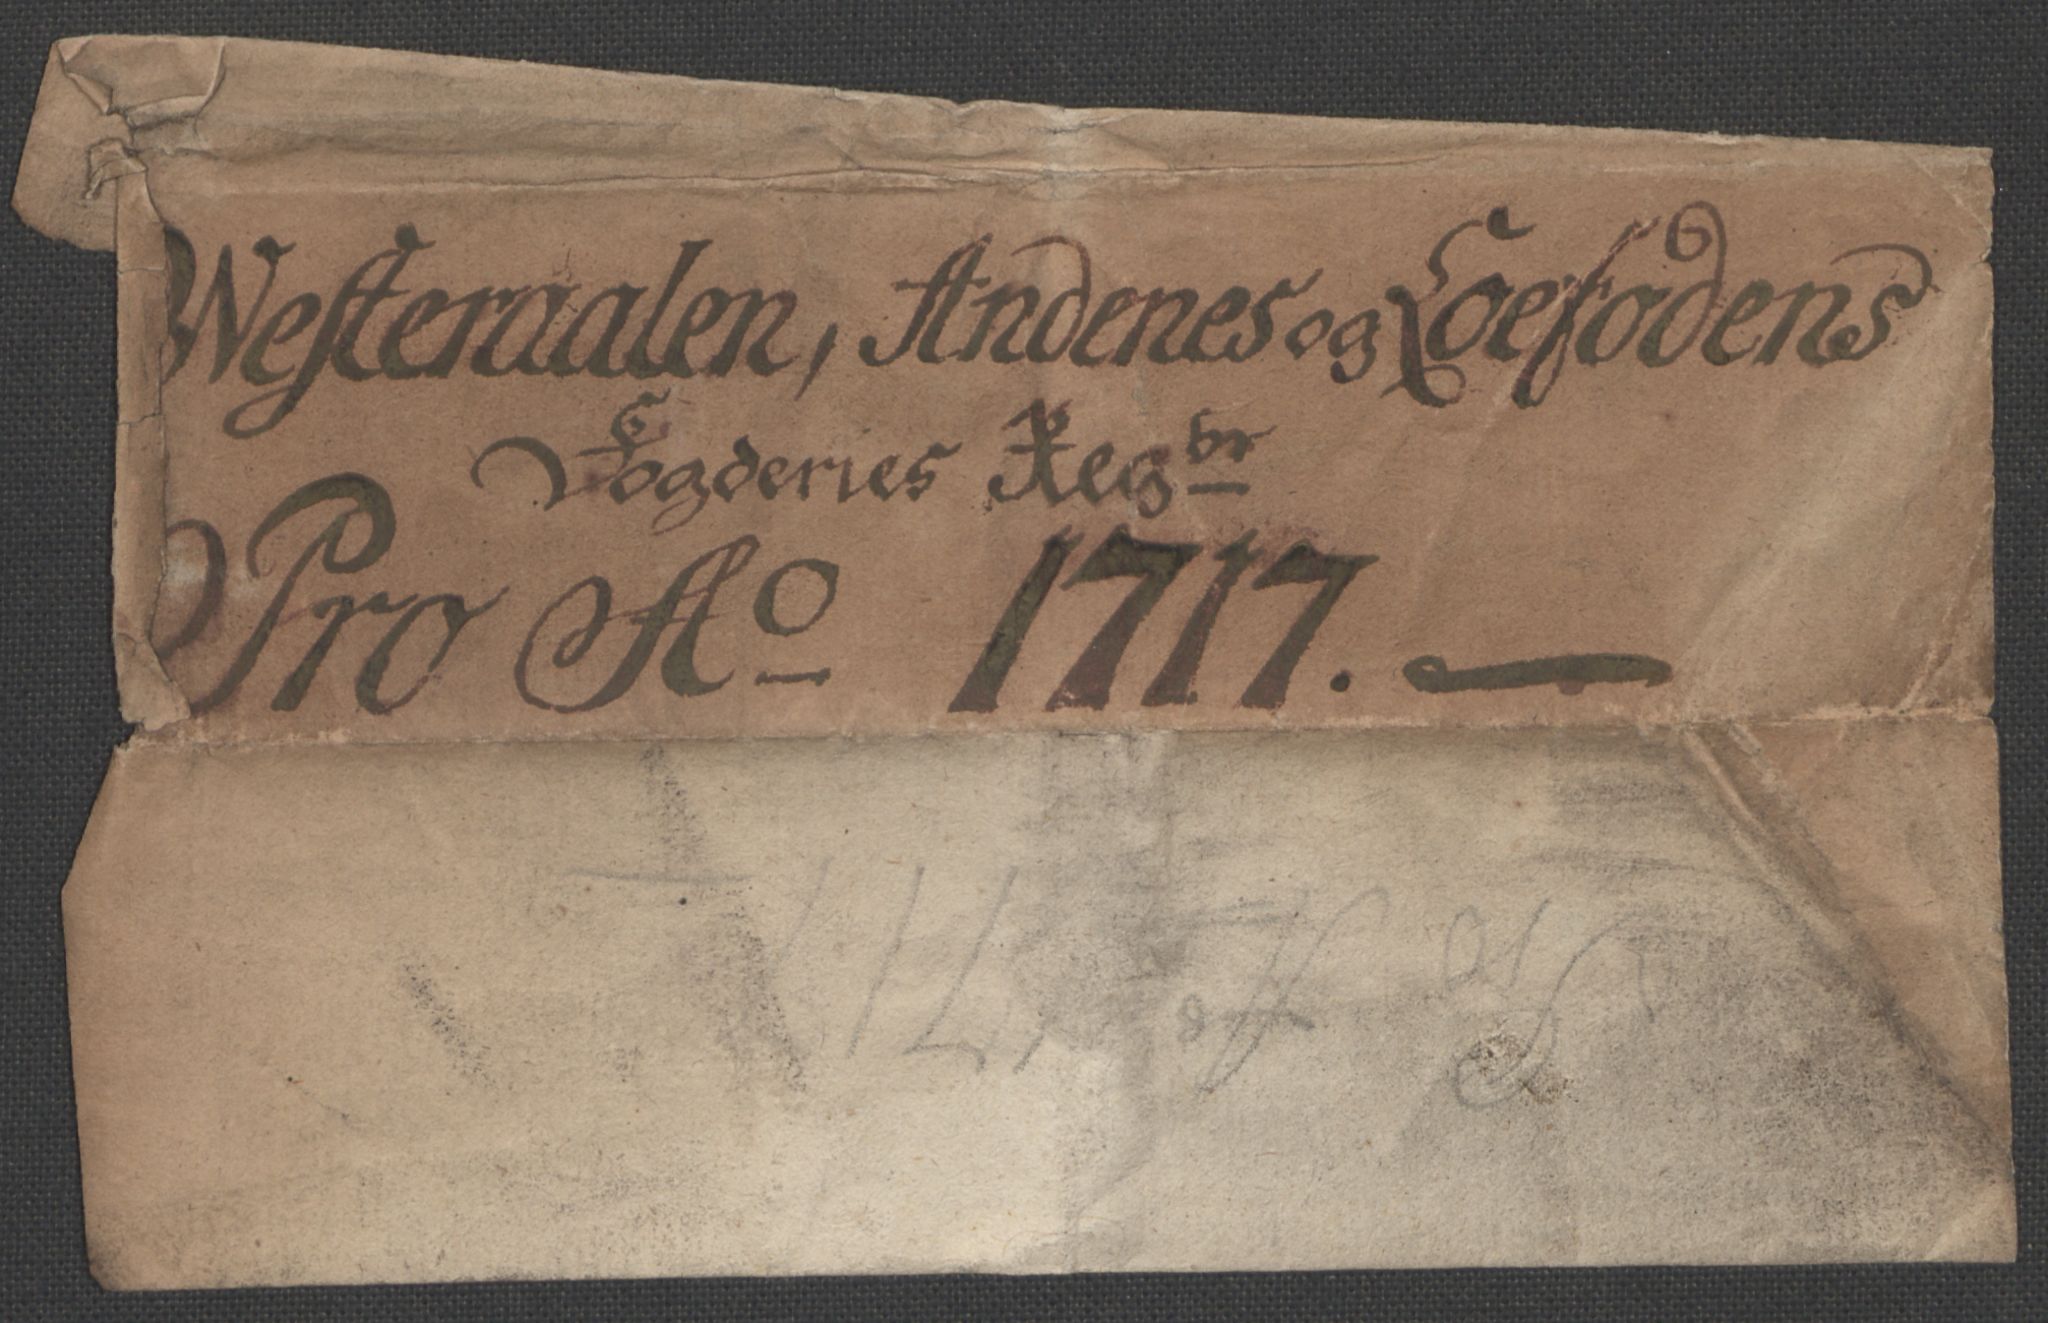 Westeraalen, Andenes og Loefodens
Fogderies Regbr
Pro Ao 1717.